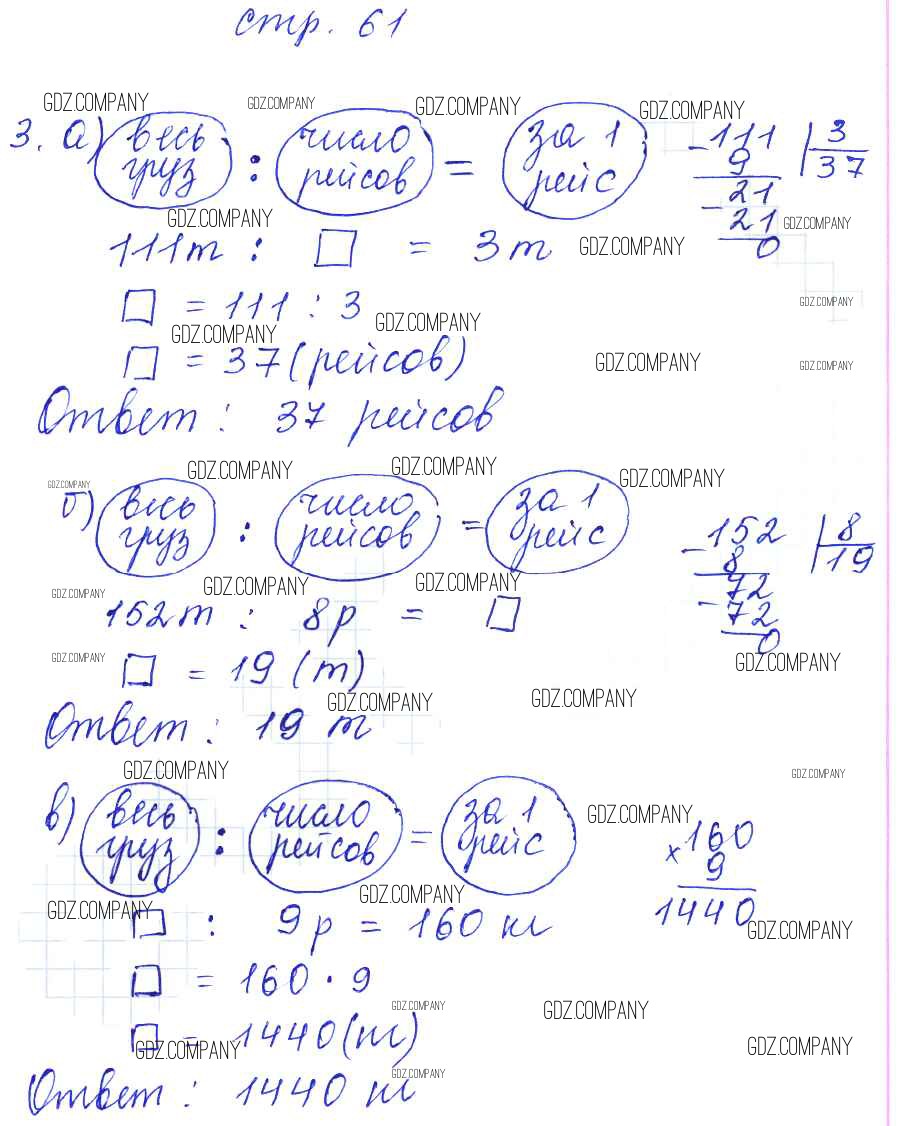 стр. 61
GDZ.COMPANY GDZ.COMPANY GDZ.COMPANY GDZ.COMPANY
3. а) весь груз : число рейсов = за 1 рейс
111 | 3
- 9 37
21
- 21
0
GDZ.COMPANY GDZ.COMPANY
111т : □ = 3т GDZ.COMPANY
□ = 111 : 3 GDZ.COMPANY
GDZ.COMPANY GDZ.COMPANY
□ = 37 (рейсов) GDZ.COMPANY GDZ.COMPANY
Ответ: 37 рейсов
GDZ.COMPANY GDZ.COMPANY GDZ.COMPANY GDZ.COMPANY
б) весь груз : число рейсов = за 1 рейс
152 | 8
- 8 19
72
- 72
0
GDZ.COMPANY GDZ.COMPANY GDZ.COMPANY
152т : 8р = □
GDZ.COMPANY GDZ.COMPANY
□ = 19 (т)
GDZ.COMPANY GDZ.COMPANY
Ответ: 19 т
GDZ.COMPANY GDZ.COMPANY
в) весь груз : число рейсов = за 1 рейс GDZ.COMPANY
160
× 9
1440
GDZ.COMPANY GDZ.COMPANY GDZ.COMPANY
□ : 9р = 160 кг
□ = 160 · 9
GDZ.COMPANY GDZ.COMPANY
□ = 1440 (кг)
GDZ.COMPANY GDZ.COMPANY
GDZ.COMPANY
Ответ: 1440 кг